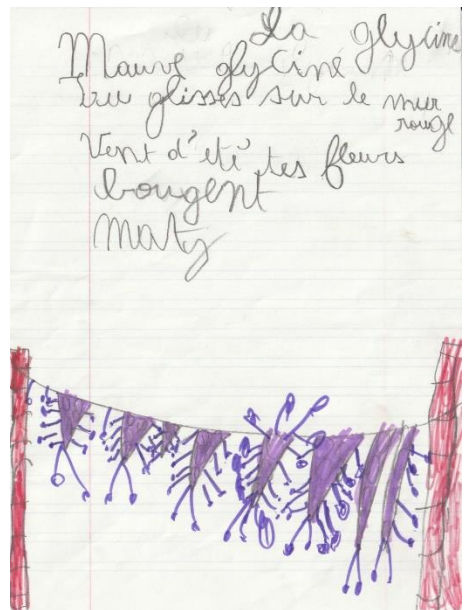 La glycine
Mauve glycine
tu glisses sur le mur
rouge
Vent d'été tes fleurs
bougent
Maty